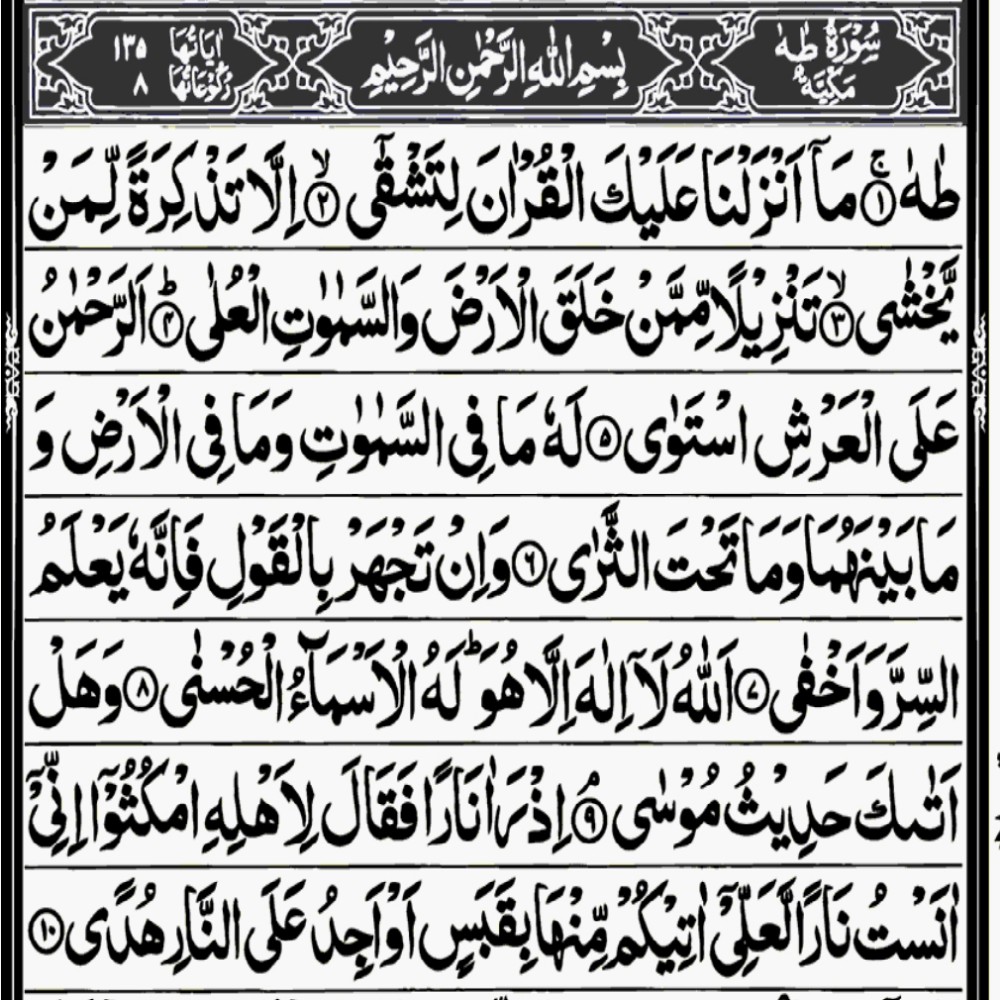 سُوْرَةُ طٰهٰ مَكِّيَّةٌ بِسْمِ اللهِ الرَّحْمٰنِ الرَّحِيْمِ اٰيَاتُهَا ١٣٥ رُكُوْعَاتُهَا ٨
طٰهٰ ۚ﴿١﴾ مَاۤ اَنْزَلْنَا عَلَيْكَ الْقُرْاٰنَ لِتَشْقٰۤى ۙ﴿٢﴾ اِلَّا تَذْكِرَةً لِّمَنْ
يَّخْشٰى ۙ﴿٣﴾ تَنْزِيْلًا مِّمَّنْ خَلَقَ الْاَرْضَ وَالسَّمٰوٰتِ الْعُلٰى ؕ﴿٤﴾ اَلرَّحْمٰنُ
عَلَى الْعَرْشِ اسْتَوٰى ﴿٥﴾ لَهٗ مَا فِى السَّمٰوٰتِ وَمَا فِى الْاَرْضِ وَ
مَا بَيْنَهُمَا وَمَا تَحْتَ الثَّرٰى ﴿٦﴾ وَاِنْ تَجْهَرْ بِالْقَوْلِ فَاِنَّهٗ يَعْلَمُ
السِّرَّ وَاَخْفٰى ﴿٧﴾ اَللهُ لَاۤ اِلٰهَ اِلَّا هُوَ ؕ لَهُ الْاَسْمَآءُ الْحُسْنٰى ﴿٨﴾ وَهَلْ
اَتٰىكَ حَدِيْثُ مُوْسٰى ۘ﴿٩﴾ اِذْ رَاٰ نَارًا فَقَالَ لِاَهْلِهِ امْكُثُوْۤا اِنِّىْۤ
اٰنَسْتُ نَارًا لَّعَلِّىْۤ اٰتِيْكُمْ مِّنْهَا بِقَبَسٍ اَوْ اَجِدُ عَلَى النَّارِ هُدًى ﴿١٠﴾